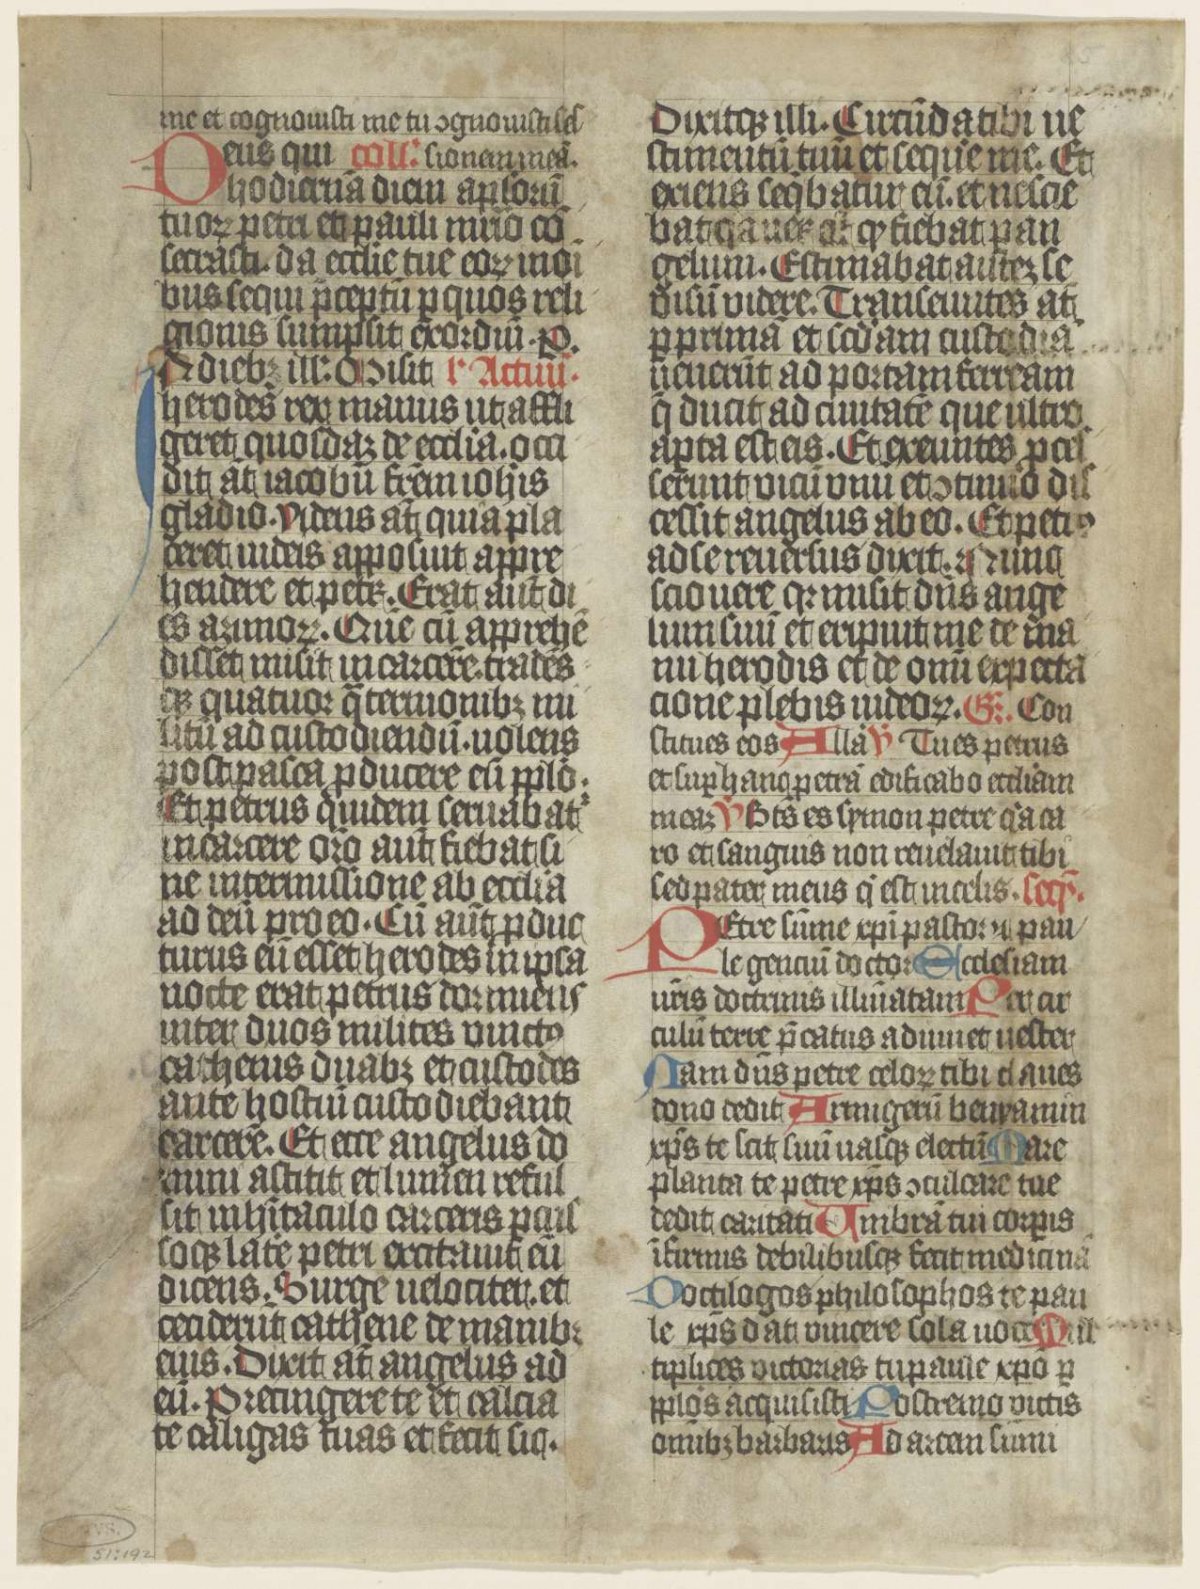 me et cognouisti me tu ↄgnouisti ses
Deus qui coll̄. sionem meā.
hodiernā diem ap̄loꝝ
tuoꝝ petri et pauli m̄rio cō
secrasti. da ecclīe tue eoꝝ in oī
bus sequi p̄ceptū ꝑ quos reli
gionis sumpsit exordiū. P.
In dieb⁊ ill̄. Misit l̄ Actuū.
herodes rex manus ut affli
geret quosdā⁊ de ecclīa. occi
dit at̄ iacobū fr̄em ioh̄is
gladio. Videns at̄ quia pla
ceret iudeis apposuit appre
hendere et petꝝ. Erat aut̄ di
es azimoꝝ. Quē cū apprehē
disset misit in carcerē. tradēs
qꝫ quatuor q̄ternionib⁊ mi
litū ad custodiendū. uolens
post pasca ꝓducere eū pp̄lo.
Et petrus quidem seruabat᷑
in carcere or̄o aut̄ fiebat si
ne intermissione ab ecclīa
ad deū pro eo. Cū aut̄ ꝓduc
turus eū esset herodes in ipsa
nocte erat petrus dormiens
inter duos milites uinctꝰ
cathenis duab⁊ et custodes
ante hostiū custodiebant
carcerē. Et ecce angelus do
mini astitit et lumen reful
sit in h̄itaculo carceris ꝑcus
soqꝫ latere petri excitauit eū
dicens. Surge uelociter. et
ceciderūt cathene de manib⁊
eius. Dixit at̄ angelus ad
eū. Precingere te et calcia
te caligas tuas et fecit sic.
Dixitqꝫ illi. Circūda tibi ue
stimentū tuū et sequere me. Et
exiens seq̄batur eū. et nescie
bat quia ueꝝ qđ fiebat ꝑ an
gelum. Estimabat autē⁊ se
uisū uidere. Transeuntes at̄
ꝑ primā et scđam custodiā
uenerūt ad portam ferream
q̄ ducit ad ciuitatē que ultro
aꝑta est eis. Et exeuntes ꝓces
serunt uicū unū et ↄtinuo dis
cessit angelus ab eo. Et petrꝰ
ad se reuersus dixit. Nunc
scio uere qꝛ misit dn̄s ange
lum suū et eripuit me de ma
nu herodis et de omī expecta
cione plebis iudeoꝝ. Gr̄. Con
stitues eos Alla ℣ Tu es petrus
et suꝑ hanc petrā edificabo eccl̄iam
meā⁊ ℣ Bt̄s es symon petre q̄a ca
ro et sanguis non reuelauit tibi
sed pater meus q̄ est in celis. seq̄.
PEtre sūme xp̄i pastor ⁊ pau
le genciū doctor Ecclesiam
ur̄is doctrinis illuīatam Per cir
culū terre p̄catus adiuuet uester
Nam dn̄s petre celoꝝ tibi claues
dono dedit Armigerū beniamin
xp̄s te scit suū uasqꝫ electū Mare
planta te petre xp̄s ↄculcare tue
dedit caritati Vmbrā tui corꝑis
īfirmis debilibusqꝫ fecit medicinā
Doctilogos philosophos te pau
le xp̄s dat uincere sola uoce Mul
tiplices victorias tu paule xp̄o ꝑ
pp̄los acquisisti Postremo uictis
omīb⁊ barbaris Ad arcem sūmi
51:192